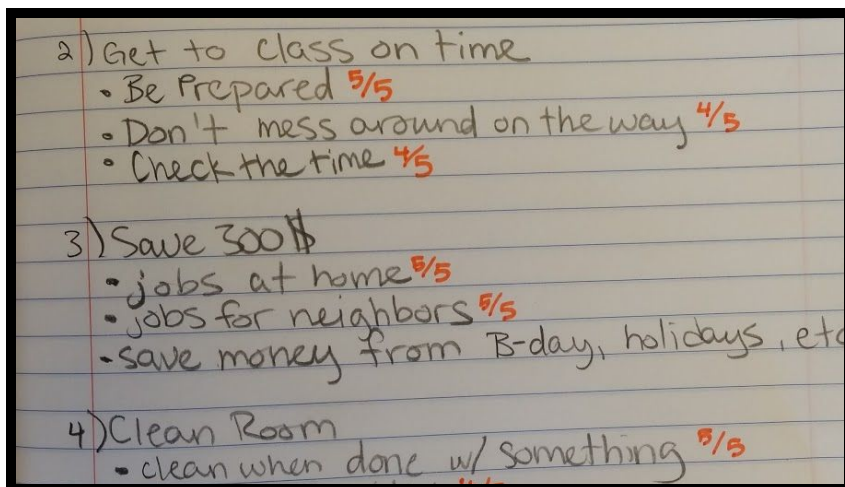 2) Get to class on time
• Be Prepared 5/5
• Don't mess around on the way 4/5
• Check the time 4/5
3) Save 300$
- jobs at home 5/5
- jobs for neighbors 5/5
- save money from B-day, holidays, etc
4) Clean Room
- clean when done w/ something 5/5